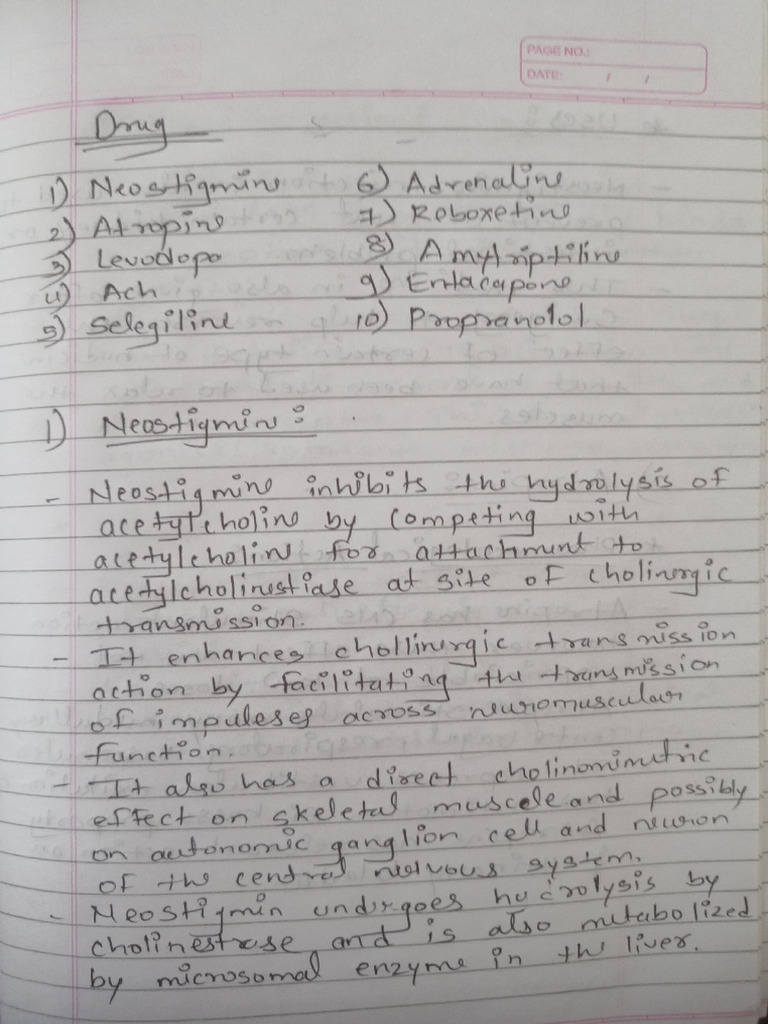 PAGE NO.:
DATE: / /
Drug
1) Neostigmine 6) Adrenaline
2) Atropine 7) Reboxetine
3) Levodopa 8) Amytriptiline
4) Ach 9) Entacapone
5) Selegiline 10) Propranolol
1) Neostigmine :
- Neostigmine inhibits the hydrolysis of
acetylcholine by competing with
acetylcholine for attachment to
acetylcholinestiase at site of cholinergic
transmission.
- It enhances chollinergic transmission
action by facilitating the transmission
of impuleses across neuromuscular
function.
- It also has a direct cholinomimetric
effect on skeletal muscele and possibly
on autonomic ganglion cell and neuron
of the central nervous system.
- Neostigmin undergoes hydrolysis by
cholinestrase and is also metabolized
by microsomal enzyme in the liver.